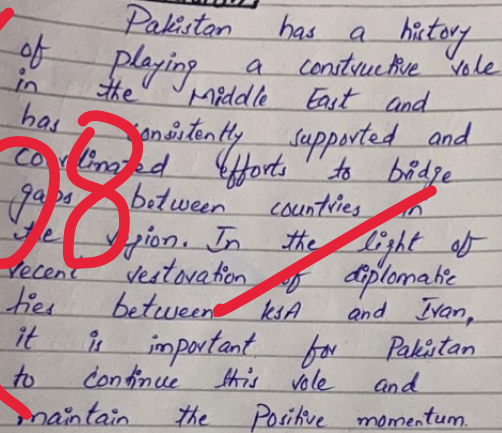 Pakistan has a history
of playing a constructive role
in the Middle East and
has consistently supported and
coordinated efforts to bridge
gaps between countries in
the region. In the light of
recent restoration of diplomatic
ties between KSA and Iran,
it is important for Pakistan
to continue this role and
maintain the Positive momentum.